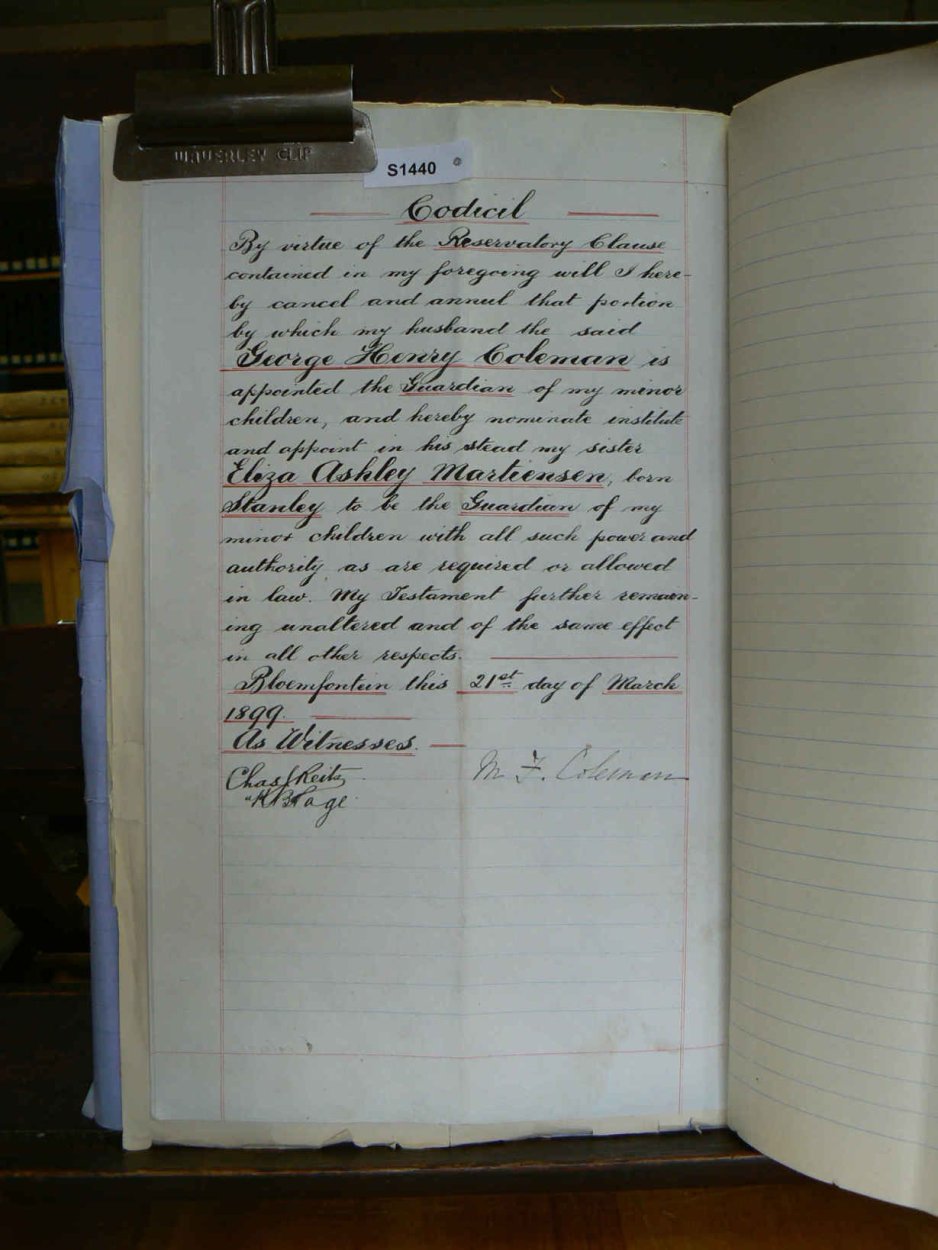 WAVERLEY CLIP
S1440
Codicil
By virtue of the Reservatory Clause
contained in my foregoing will I here-
by cancel and annul that portion
by which my husband the said
George Henry Coleman is
appointed the Guardian of my minor
children, and hereby nominate institute
and appoint in his stead my sister
Eliza Ashley Martiensen, born
Stanley to be the Guardian of my
minor children with all such power and
authority as are required or allowed
in law. My Testament further remain-
ing unaltered and of the same effect
in all other respects.
Bloemfontein this 21st day of March
1899.
As Witnesses.
Chas J Reitz
M F. Coleman
Page